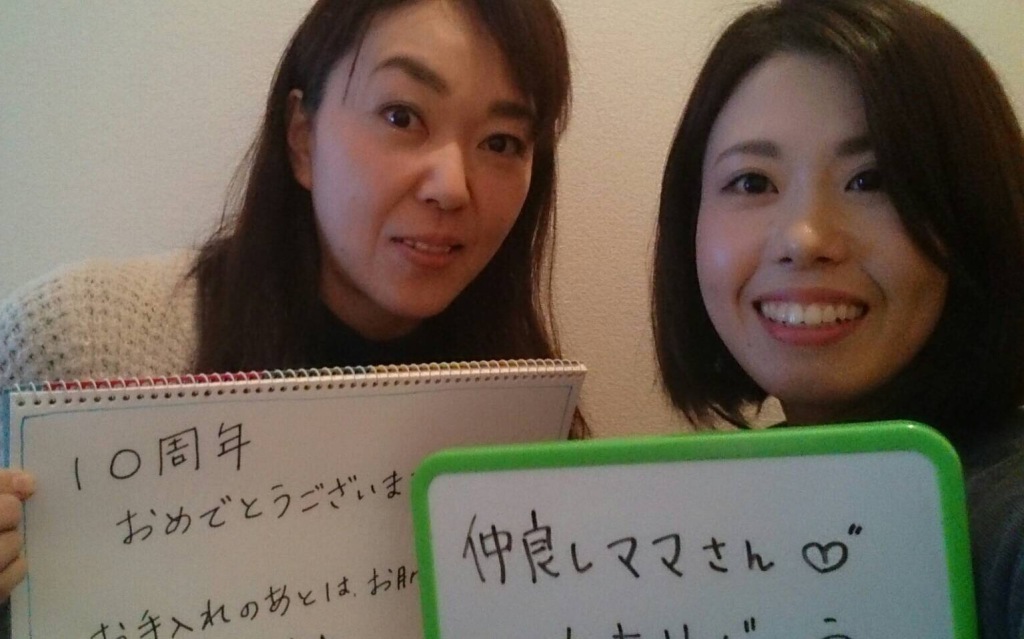 10周年
おめでとうございま
お手入れのあとは、お肌
仲良しママさん♡